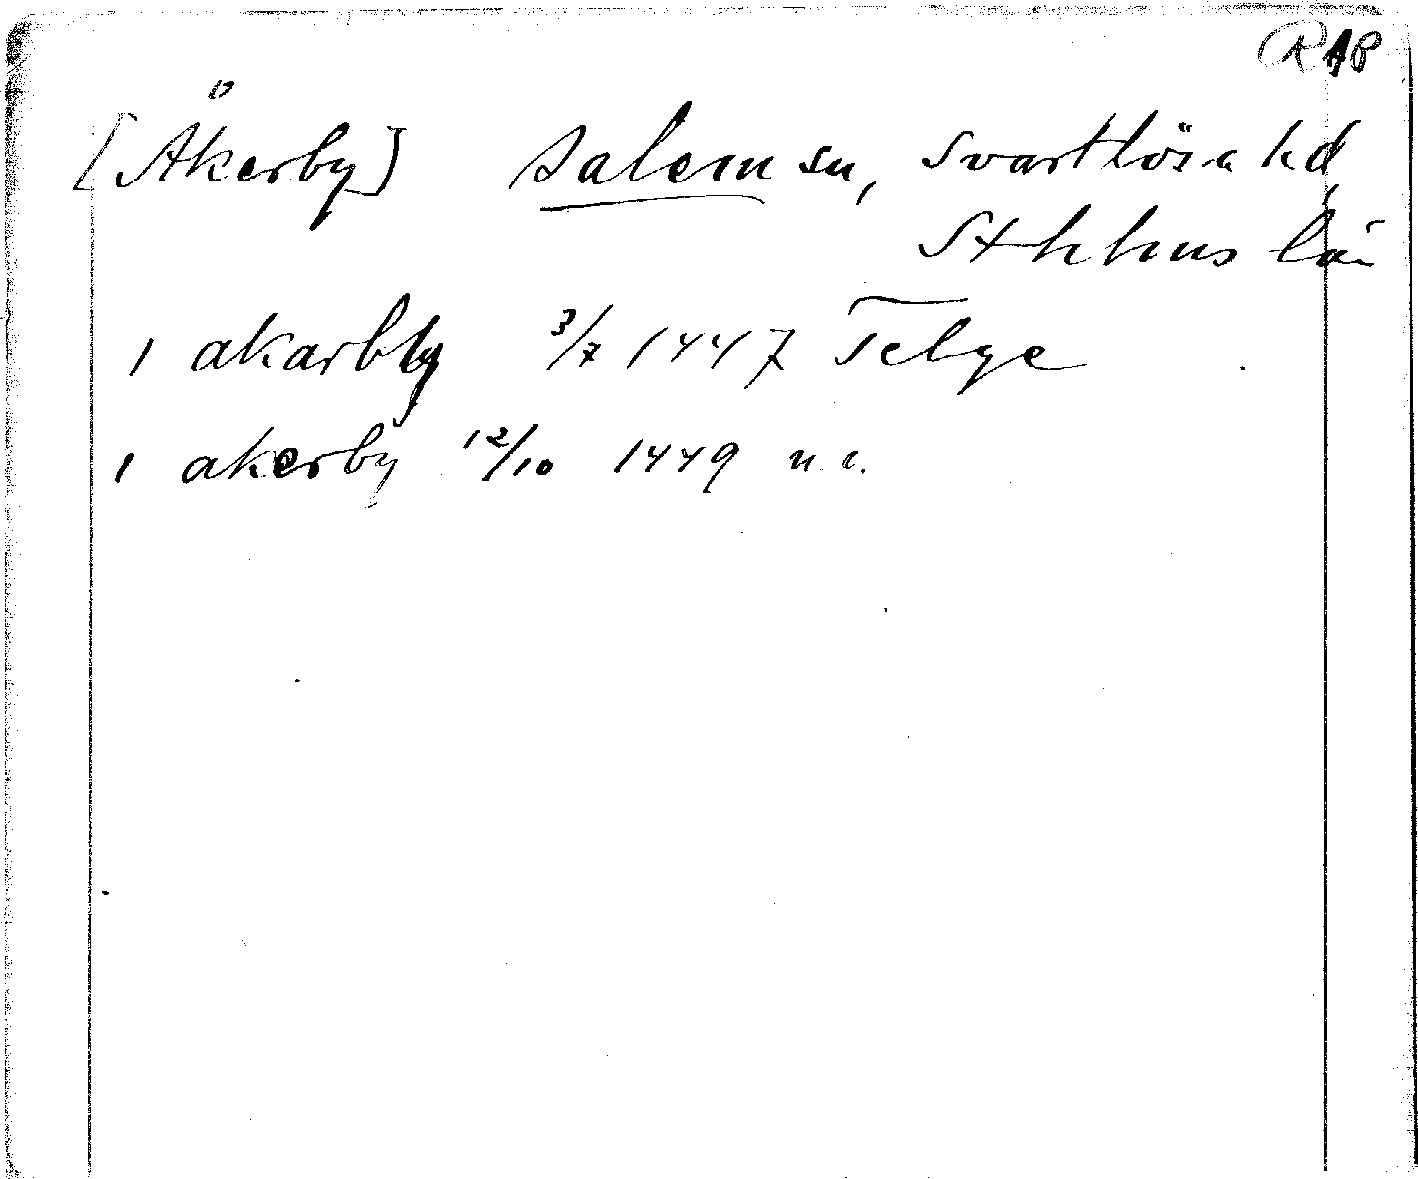 RAP
[Åkerby] Salem sn, Svartlösa hd,
Sthlms län
1 akarbby 3/7 1447 Telge
1 akerby 12/10 1449